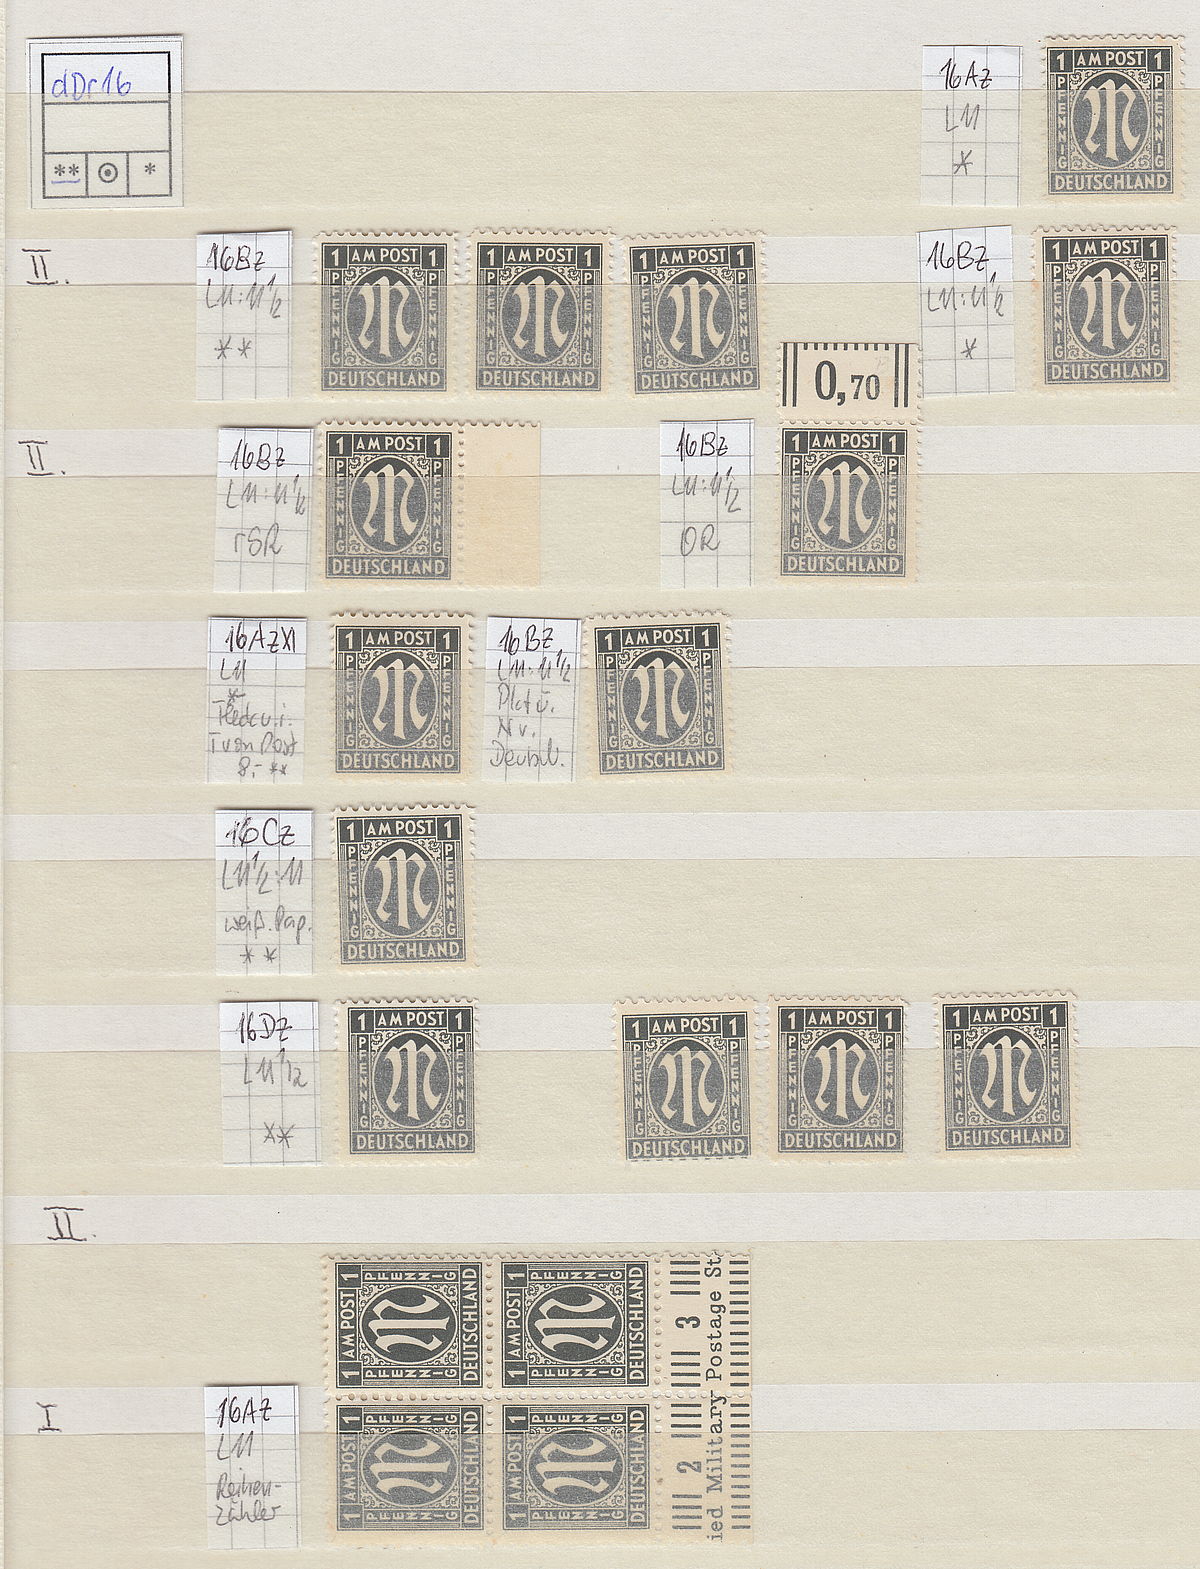 dDr16
** ⊙ *
16Az
L11
*
1 AM POST 1
PFENNIG PFENNIG
DEUTSCHLAND
II.
16Bz
L11:11 1/2
**
1 AM POST 1
PFENNIG PFENNIG
DEUTSCHLAND
1 AM POST 1
PFENNIG PFENNIG
DEUTSCHLAND
1 AM POST 1
PFENNIG PFENNIG
DEUTSCHLAND
16Bz
L11:11 1/2
*
1 AM POST 1
PFENNIG PFENNIG
DEUTSCHLAND
II.
16Bz
L11:11 1/2
rSR
1 AM POST 1
PFENNIG PFENNIG
DEUTSCHLAND
16Bz
L11:11 1/2
OR
0,70
1 AM POST 1
PFENNIG PFENNIG
DEUTSCHLAND
16AzXI
L11
*
T von Post
8,- **
1 AM POST 1
PFENNIG PFENNIG
DEUTSCHLAND
16Bz
L11:11 1/2
N v.
1 AM POST 1
PFENNIG PFENNIG
DEUTSCHLAND
16Cz
L11 1/2:11
weiß. Pap.
**
1 AM POST 1
PFENNIG PFENNIG
DEUTSCHLAND
16Dz
L11 1/2
**
1 AM POST 1
PFENNIG PFENNIG
DEUTSCHLAND
1 AM POST 1
PFENNIG PFENNIG
DEUTSCHLAND
1 AM POST 1
PFENNIG PFENNIG
DEUTSCHLAND
1 AM POST 1
PFENNIG PFENNIG
DEUTSCHLAND
II.
I
16Az
L11
Reihen-
zähler
1 AM POST 1
PFENNIG PFENNIG
DEUTSCHLAND
1 AM POST 1
PFENNIG PFENNIG
DEUTSCHLAND
1 AM POST 1
PFENNIG PFENNIG
DEUTSCHLAND
1 AM POST 1
PFENNIG PFENNIG
DEUTSCHLAND
2 3
ied Military Postage St